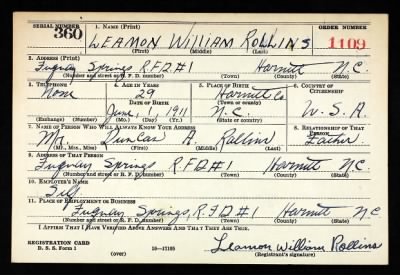 SERIAL NUMBER 1. NAME (Print) ORDER NUMBER
360 LEAMON WILLIAM ROLLINS 1109
(First) (Middle) (Last)
2. ADDRESS (Print)
Fuquay Springs R.F.D#1 Harnett N.C.
(Number and street or R. F. D. number) (Town) (County) (State)
3. TELEPHONE 4. AGE IN YEARS 5. PLACE OF BIRTH 6. COUNTRY OF CITIZENSHIP
None 29 Harnett Co
DATE OF BIRTH (Town or county)
June 1 1911 N.C. U.S.A
(Exchange) (Number) (Mo.) (Day) (Yr.) (State or country)
7. NAME OF PERSON WHO WILL ALWAYS KNOW YOUR ADDRESS 8. RELATIONSHIP OF THAT PERSON
Mr Duncan A. Rollins Father
(Mr., Mrs., Miss) (First) (Middle) (Last)
9. ADDRESS OF THAT PERSON
Fuquay Springs R.F.D#1 Harnett NC
(Number and street or R. F. D. number) (Town) (County) (State)
10. EMPLOYER'S NAME
Self
11. PLACE OF EMPLOYMENT OR BUSINESS
Fuquay Springs, R.F.D #1 Harnett NC.
(Number and street or R. F. D. number) (Town) (County) (State)
I AFFIRM THAT I HAVE VERIFIED ABOVE ANSWERS AND THAT THEY ARE TRUE.
REGISTRATION CARD
D. S. S. Form 1 16—17105 Leamon William Rollins
(over) (Registrant's signature)